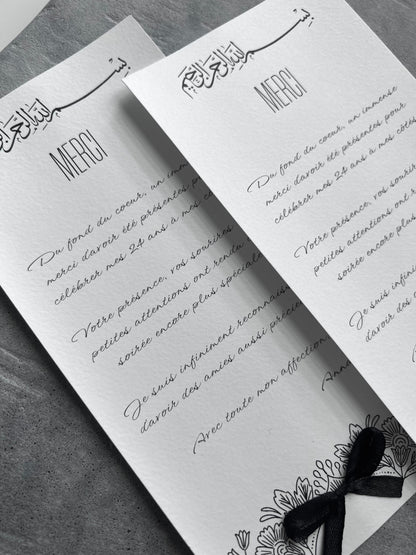 بسم الله الرحمن
MERCI
Du fond du coeur, un
merci davoir été présentes
célébrer mes 24 ans à mes
Votre présence, vos sourires
petites attentions ont rendu
soirée encore plus
Je suis infiniment
davoir des amies aussi
Avec toute mon affection
بسم الله الرحمن الرحيم
MERCI
Du fond du coeur, un immense
merci davoir été présentes pour
célébrer mes 24 ans à mes
Votre présence, vos sourires
petites attentions ont
soirée encore
Je suis
davoir des